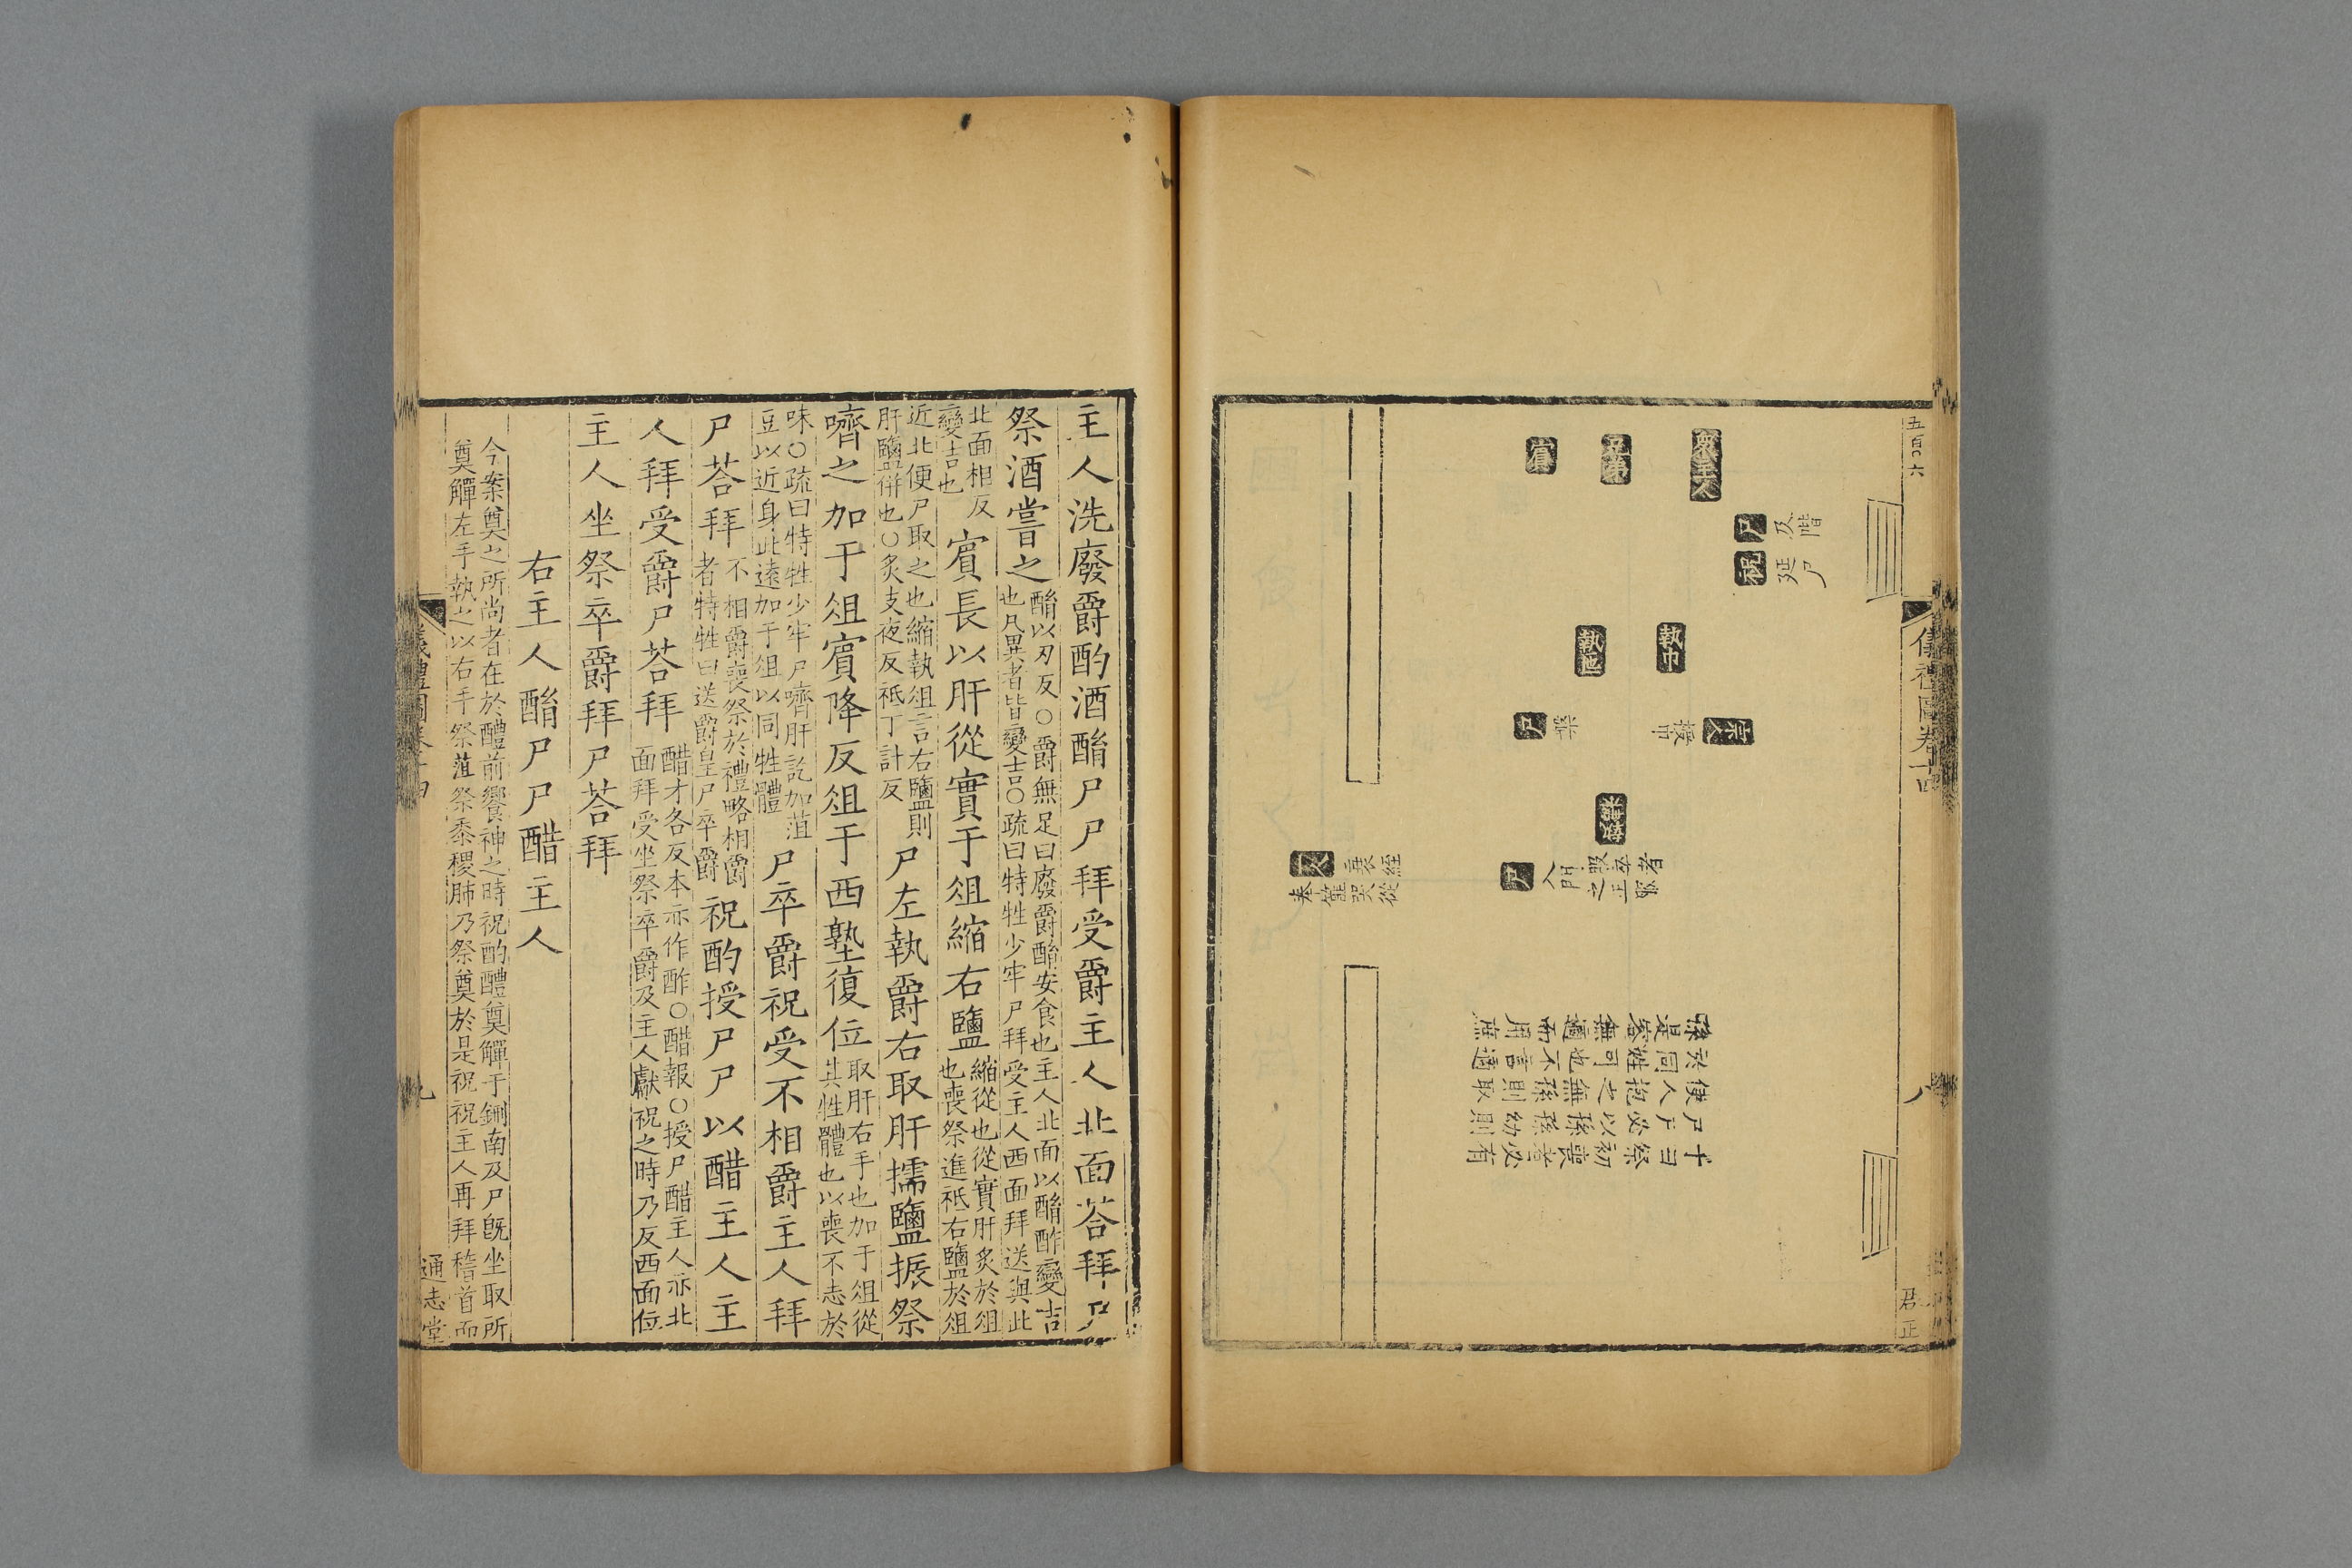 五百〇六
儀禮圖卷十四
八
君正
眾主人
兄弟
賓
尸
及階
祝
延尸
執巾
執匜
宗人
授巾
尸
盥
執槃
尸
入門
主人洗廢爵酌酒酳尸尸拜受爵主人北面荅拜尸
祭酒嘗之
酳以刃反○爵無足曰廢爵酳安食也主人北面以酳酢變吉
也凡異者皆變吉○疏曰特牲少牢尸拜受主人西面拜送與此
北面相反
變吉也
賓長以肝從實于俎縮右鹽
縮從也從實肝炙於俎
也喪祭進柢右鹽於俎
近北便尸取之也縮執俎言右鹽則
肝鹽併也○炙支夜反柢丁計反
尸左執爵右取肝擩鹽振祭
嚌之加于俎賓降反俎于西塾復位
取肝右手也加于俎從
其牲體也以喪不志於
味○疏曰特牲少牢尸嚌肝訖加菹
豆以近身此遠加于俎以同牲體
尸卒爵祝受不相爵主人拜
尸荅拜
不相爵喪祭於禮略相爵
者特牲曰送爵皇尸卒爵
祝酌授尸尸以醋主人主
人拜受爵尸荅拜
醋才各反本亦作酢○醋報○授尸醋主人亦北
面拜受坐祭卒爵及主人獻祝之時乃反西面位
主人坐祭卒爵拜尸荅拜
右主人酳尸尸醋主人
今案奠之所尚者在於醴前饗神之時祝酌醴奠觶于鉶南及尸旣坐取所
奠觶左手執之以右手祭菹祭黍稷肺乃祭奠於是祝祝主人再拜稽首而
九
通志堂